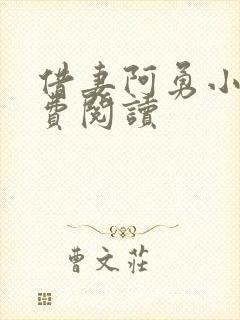 借妻阿勇小
費閱讀
曹文莊